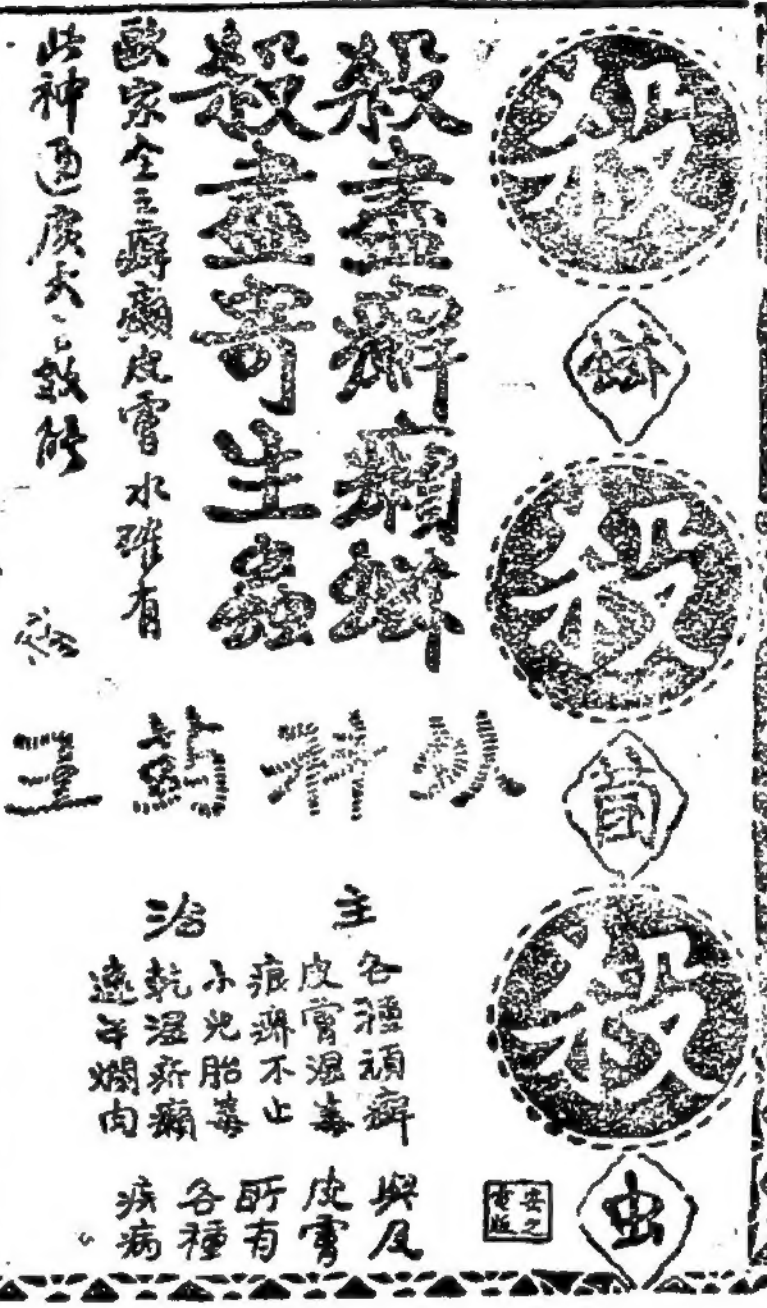 殺
殺
菌
殺
虫
殺盡癬癩
殺盡寄生蟲
歐家全之癬癩皮膚水確有
此神通廣大之效能
外科药王
主治
各種頑癬
皮膚濕毒
痕癢不止
小兒胎毒
乾濕疥癩
遠年爛肉
與及
皮膚
所有
各種
疾病
安之
電版